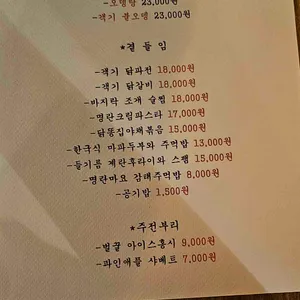 -오뎅탕 23,000원
-객기 불오뎅 23,000원
*곁들임
-객기 닭파전 18,000원
-객기 닭갈비 18,000원
-바지락 조개 술찜 18,000원
-명란크림파스타 17,000원
-닭똥집야채볶음 15,000원
-한국식 마파두부와 주먹밥 13,000원
-들기름 계란후라이와 스팸 15,000원
-명란마요 감태주먹밥 8,000원
-공기밥 1,500원
*주전부리
-벌꿀 아이스홍시 9,000원
-파인애플 샤베트 7,000원